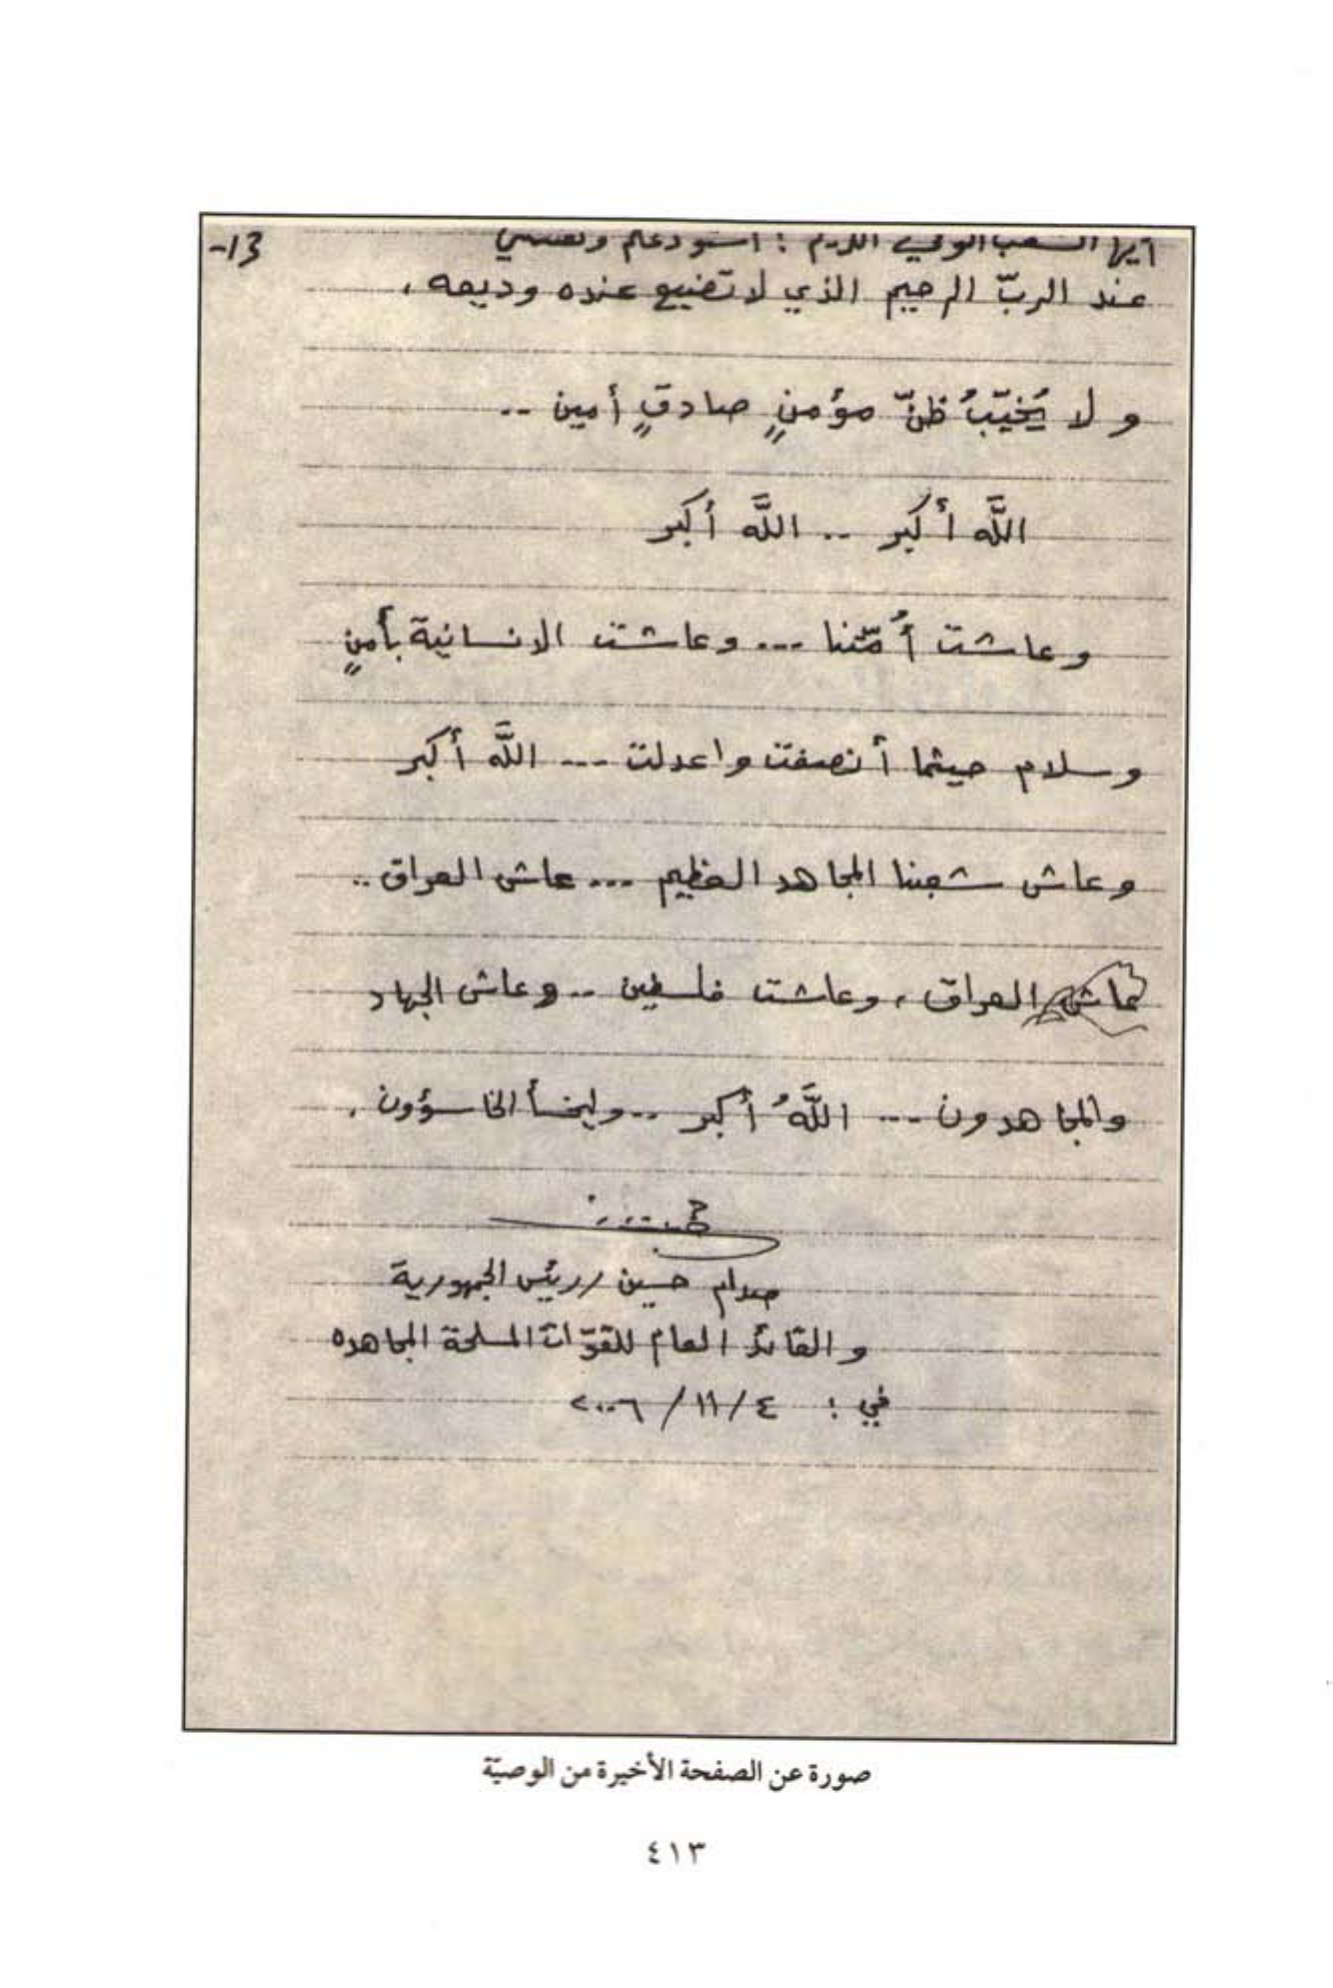 13-
أيها الشعب الوفي الكريم : استودعكم ونفسي
عند الربّ الرحيم الذي لا تضيع عنده وديعه ،
و لا يُخيّبُ ظنّ مؤمنٍ صادقٍ أمين ..
اللَّه أكبر .. اللَّه أكبر
وعاشت أُمّتنا ... وعاشت الانسانية بأمنٍ
وسلام حيثما أنصفت واعدلت ... اللَّه أكبر
وعاش شعبنا المجاهد العظيم ... عاش العراق ..
عاش العراق ، وعاشت فلسطين .. وعاش الجهاد
والمجاهدون ... اللَّهُ أكبر .. وليخسأ الخاسؤون .
صدام حسين / رئيس الجمهورية
و القائد العام للقوّات المسلحة المجاهده
في : ٤ / ١١ / ٢٠٠٦
صورة عن الصفحة الأخيرة من الوصيّة
٤١٣